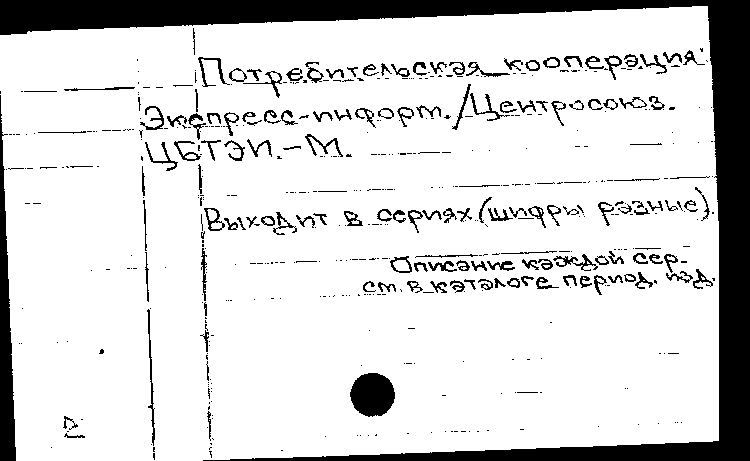 Потребительская кооперация:
Экспресс-информ./Центросоюз.
ЦБТЭИ.-М.
Выходит в сериях (шифры разные).
Описание каждой сер.
см. в каталоге период. изд.